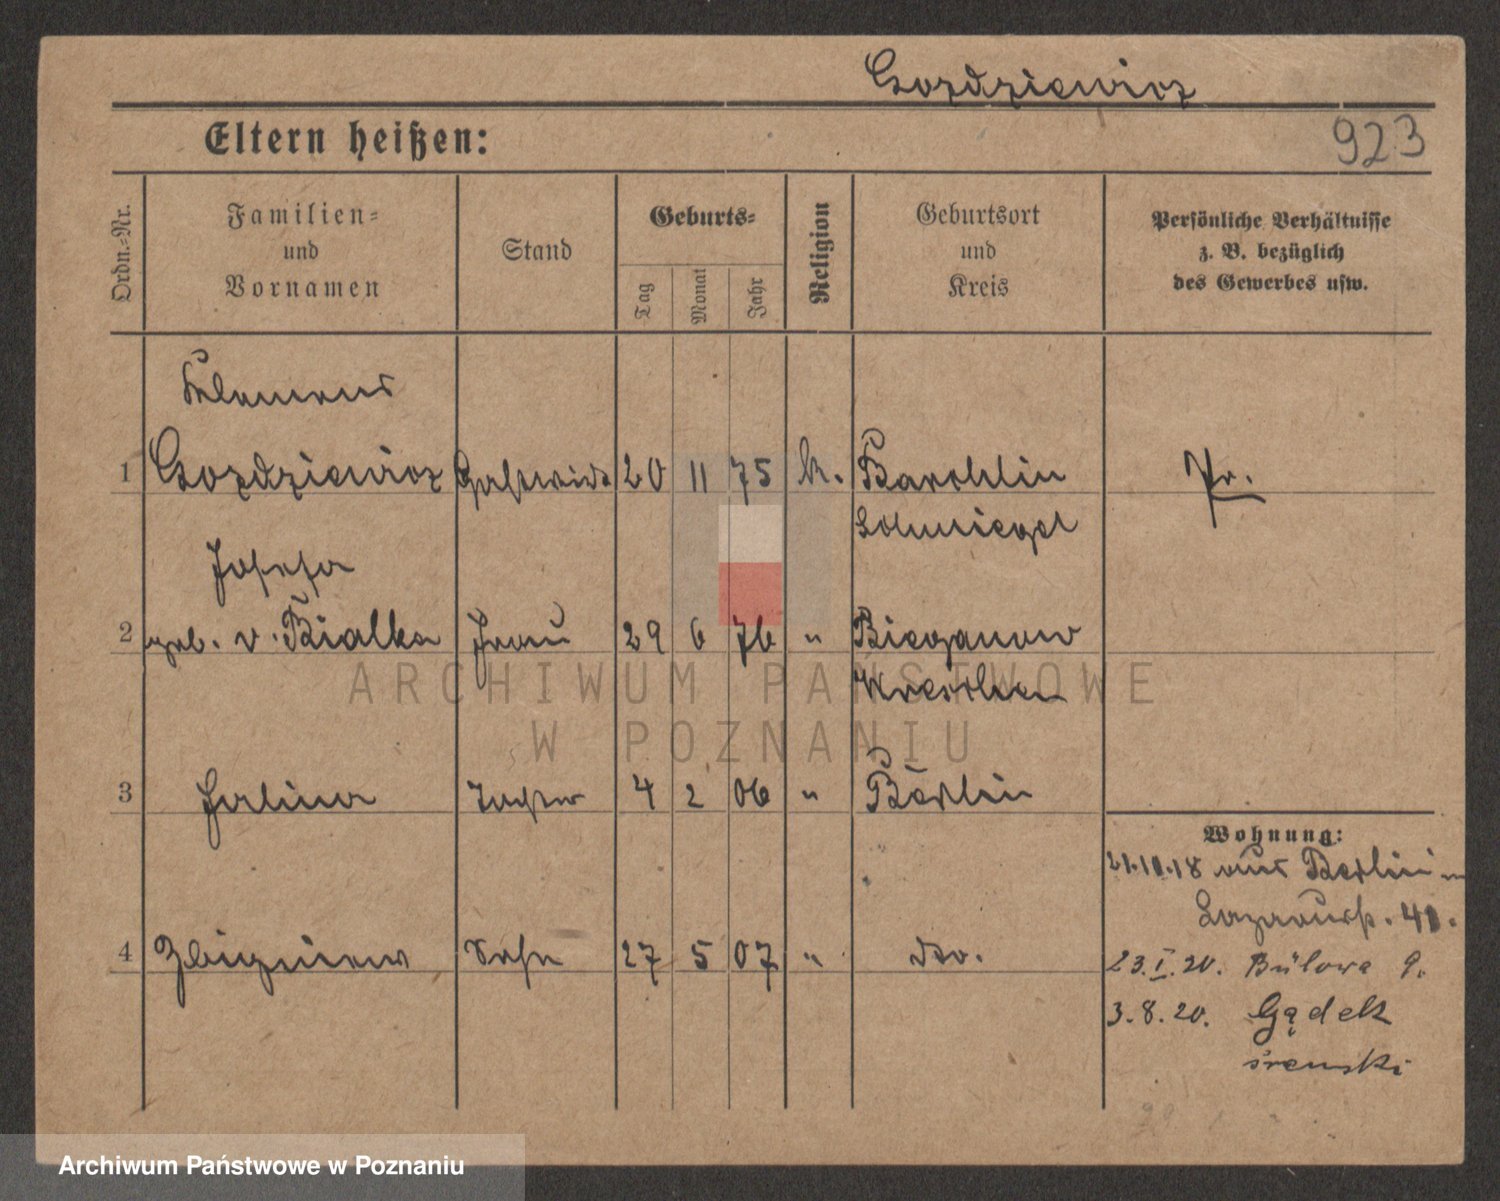 Gozdziewicz
Eltern heißen:
923
Ordn.-Nr.
Familien-
und
Vornamen
Stand
Geburts-
Tag
Monat
Jahr
Religion
Geburtsort
und
Kreis
Persönliche Verhältnisse
z. B. bezüglich
des Gewerbes usw.
Klemens
1 Gozdziewicz Gastwirt 20 11 75 k. Barchlin Pr.
Schmiegel
Josefa
2 geb. v. Bialka Frau 29 6 76 " Bieganowo
Wreschen
3 Halina Tochter 4 2 06 " Berlin
Wohnung:
21.10.18 aus Berlin
Lazarusstr. 41.
4 Zbigniew Sohn 27 5 07 " dto.
23.I.20. Bülowa 9.
3.8.20. Gądek
śremski
ARCHIWUM PAŃSTWOWE
W POZNANIU
Archiwum Państwowe w Poznaniu